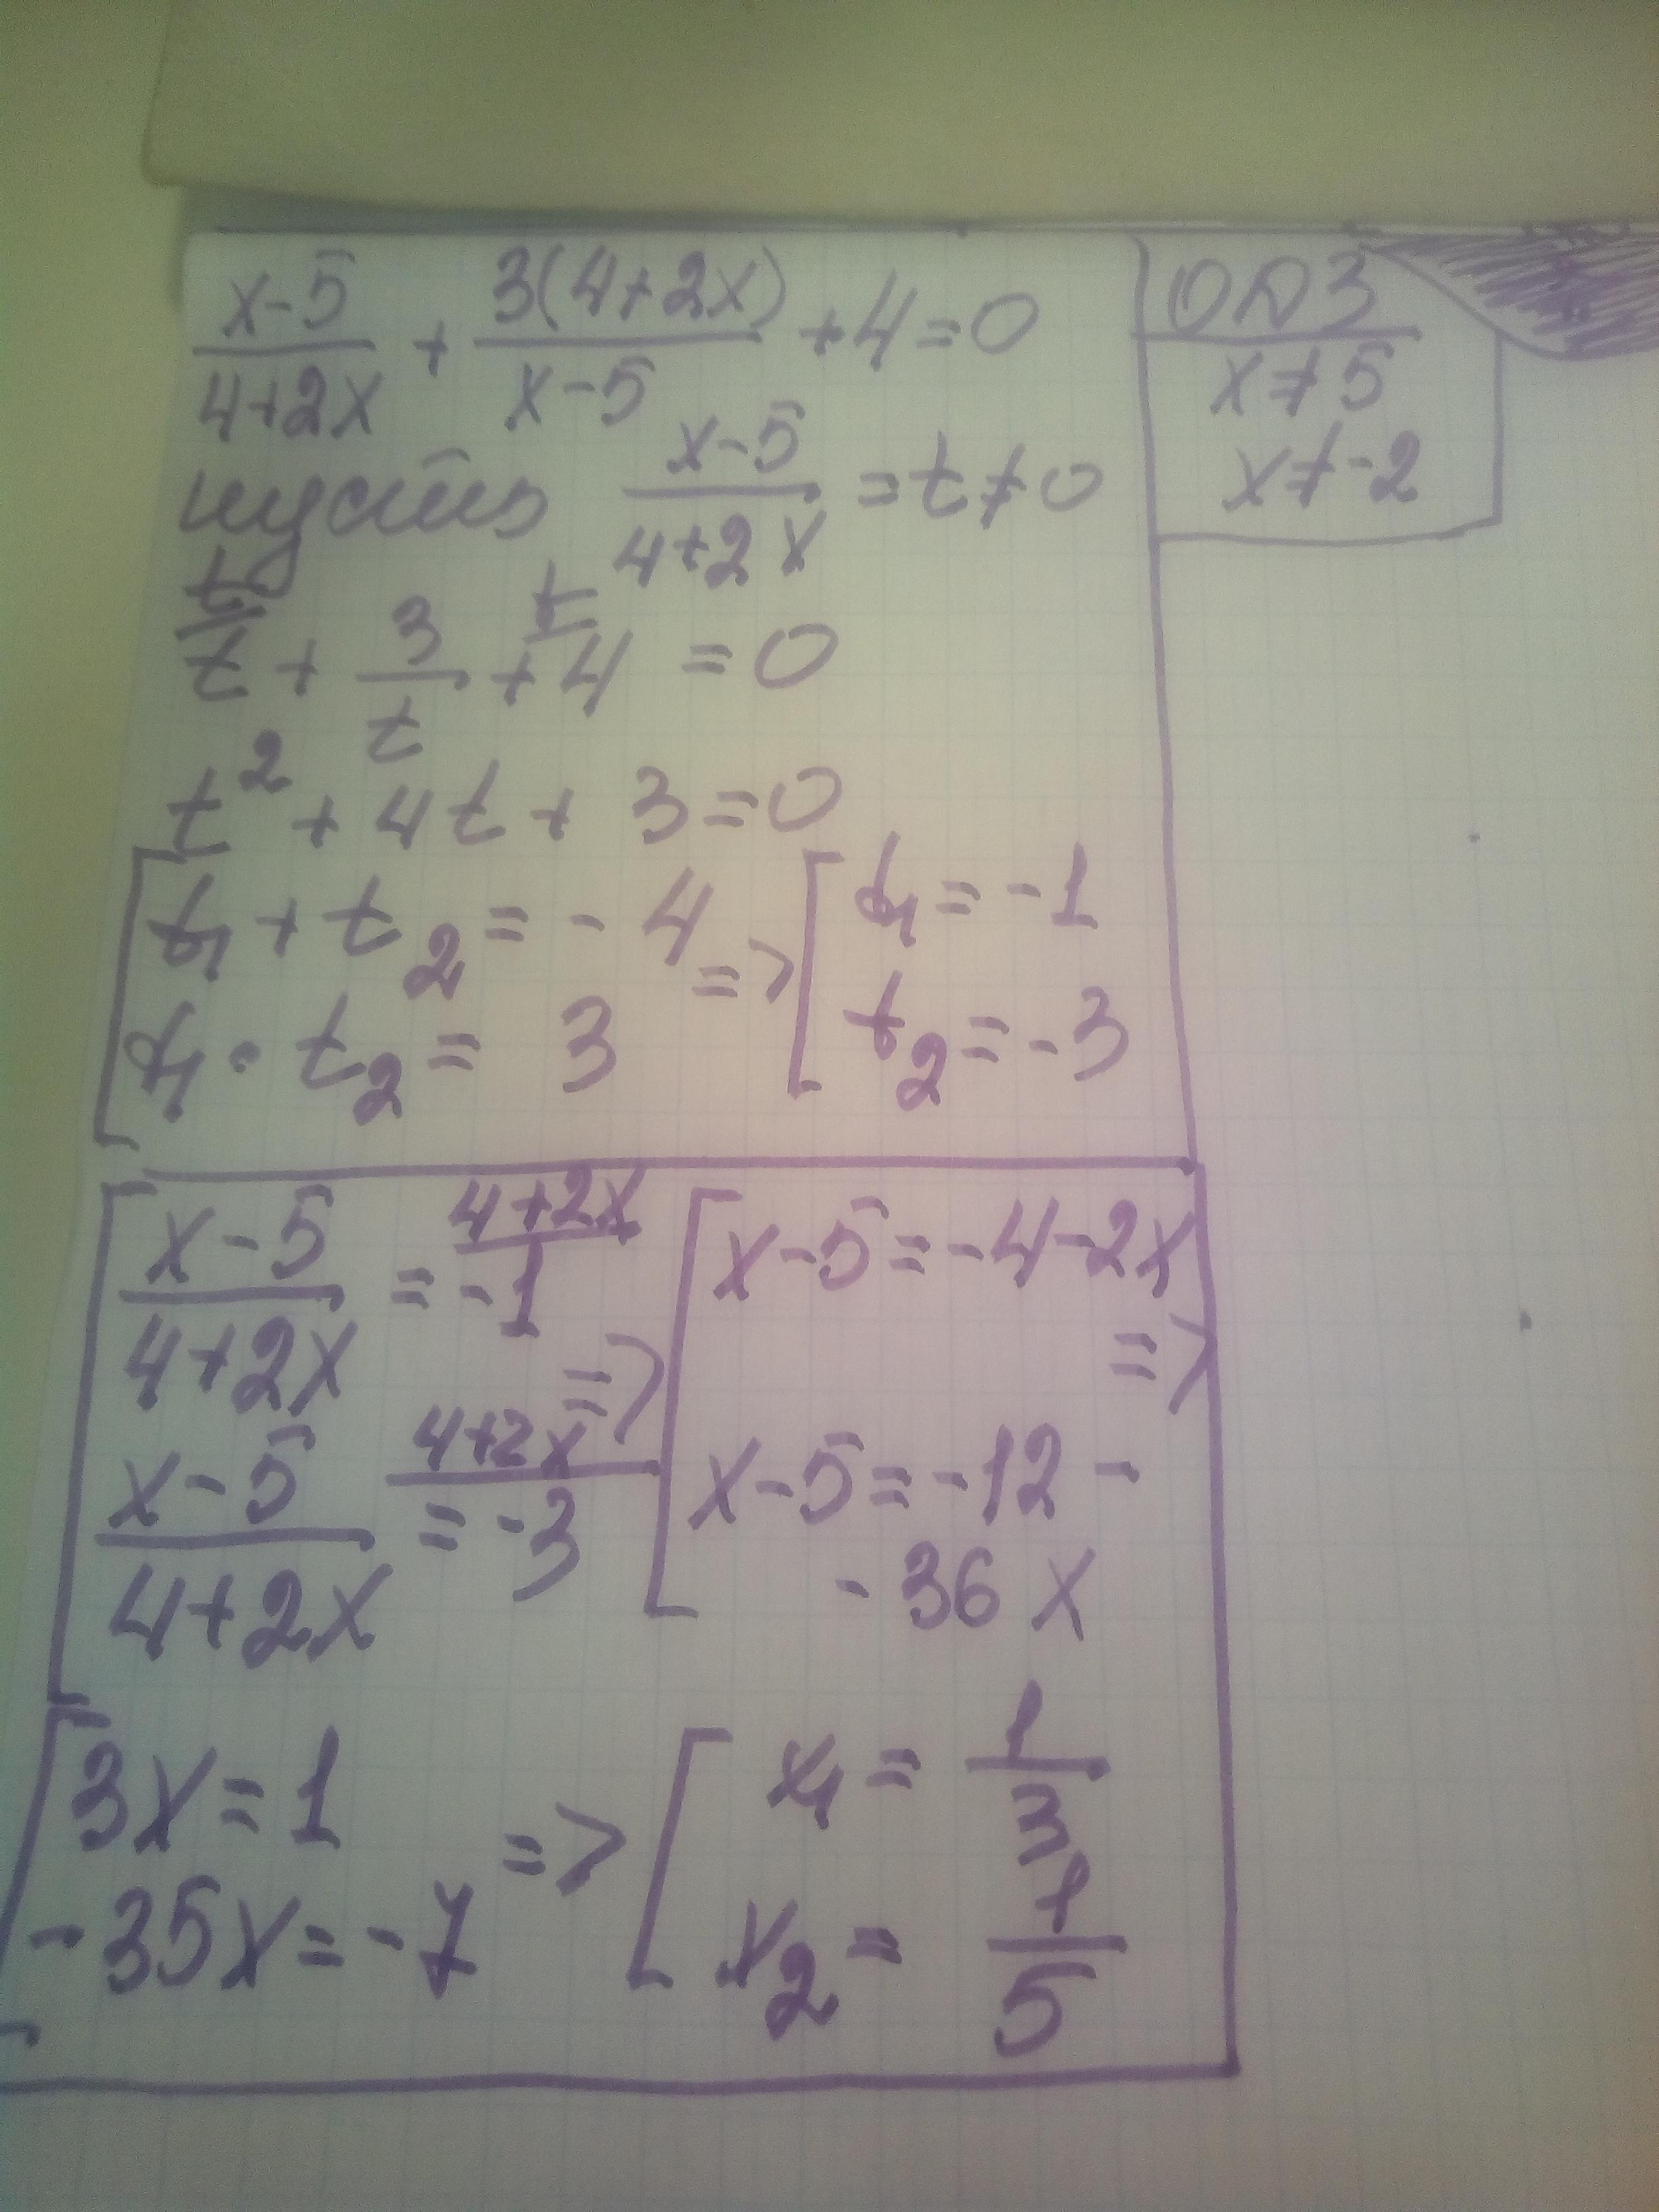 x-5/4+2x + 3(4+2x)/x-5 +4=0
ОДЗ
x≠5
x≠-2
пусть x-5/4+2x = t≠0
t/t + 3/t + t/4 = 0
t² + 4t + 3 = 0
t₁ + t₂ = -4
t₁ · t₂ = 3
=>
t₁ = -1
t₂ = -3
x-5/4+2x = 4+2x/-1
x-5/4+2x = 4+2x/-3
=>
x-5=-4-2x
=>
x-5=-12-
-36x
3x=1
-35x=-7
=>
x₁ = 1/3
x₂ = 1/5